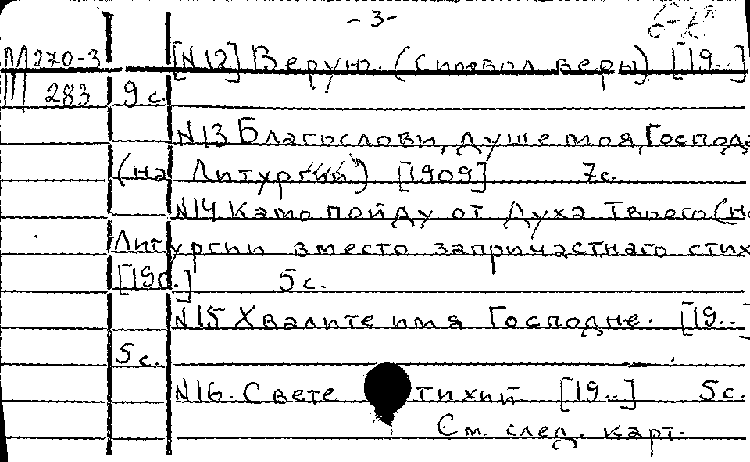 - 3 -
М270-3 [N12] Верую. (Символ веры) [19..]
283 9 с.
N13 Благослови, душе моя, Господ
(на Литургии) [1909] 7с.
N14 Камо пойду от Духа Твоего (н
Литургии вместо запричастнаго стих
[190.] 5 с.
N15 Хвалите имя Господне. [19..
5 с.
N16. Свете тихий [19..] 5с.
См. след. карт.